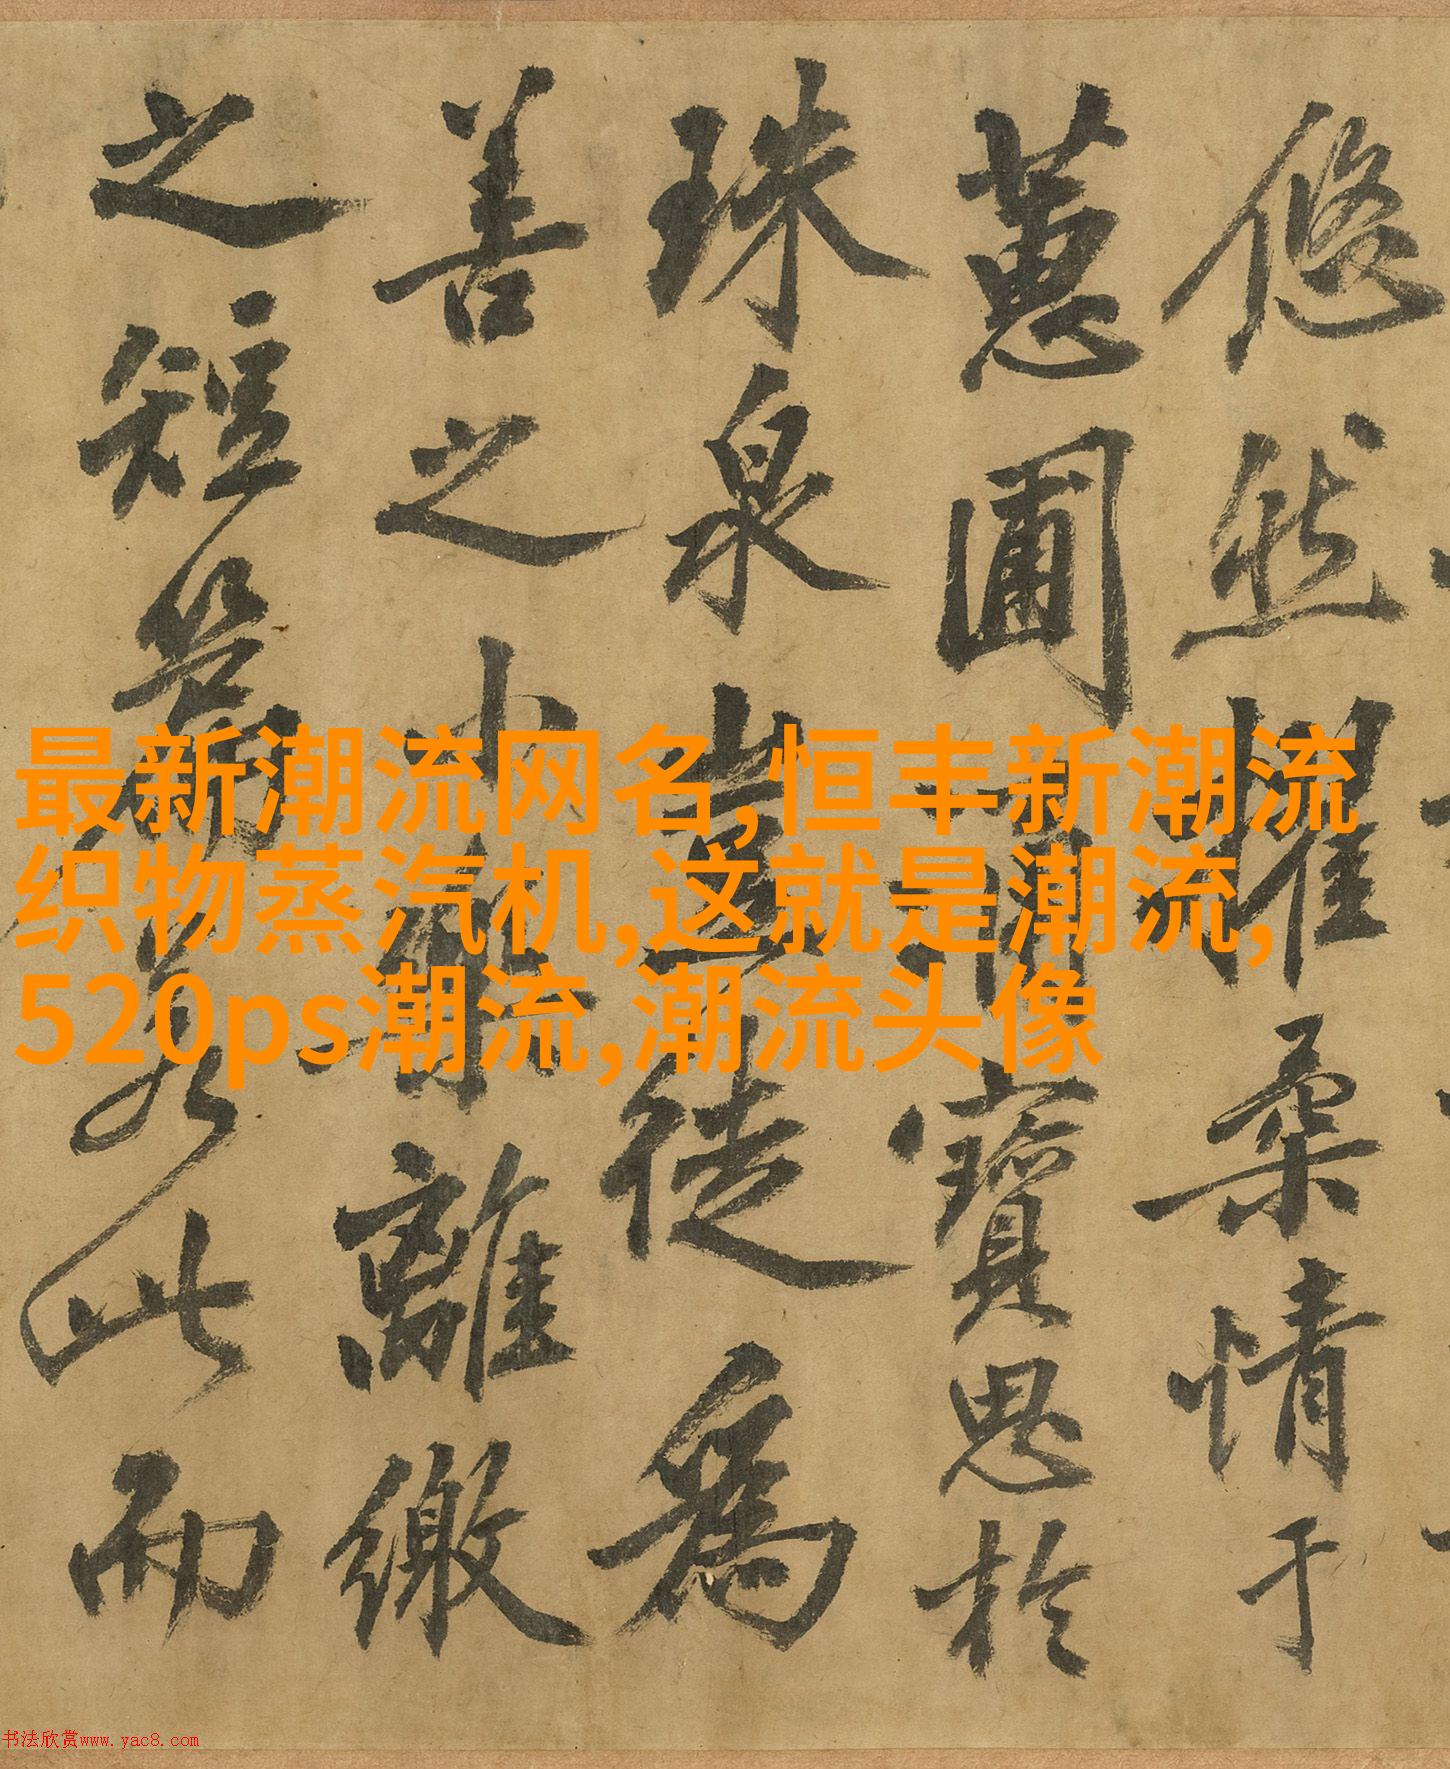 悠然擢柔情于
蕙圃涌寶思於
珠泉豈徒為
善之小樂離繳
之短若此而
最新潮流网名,恒丰新潮流
织物蒸汽机,这就是潮流,
520ps潮流,潮流头像
书法欣赏www.yac8.com